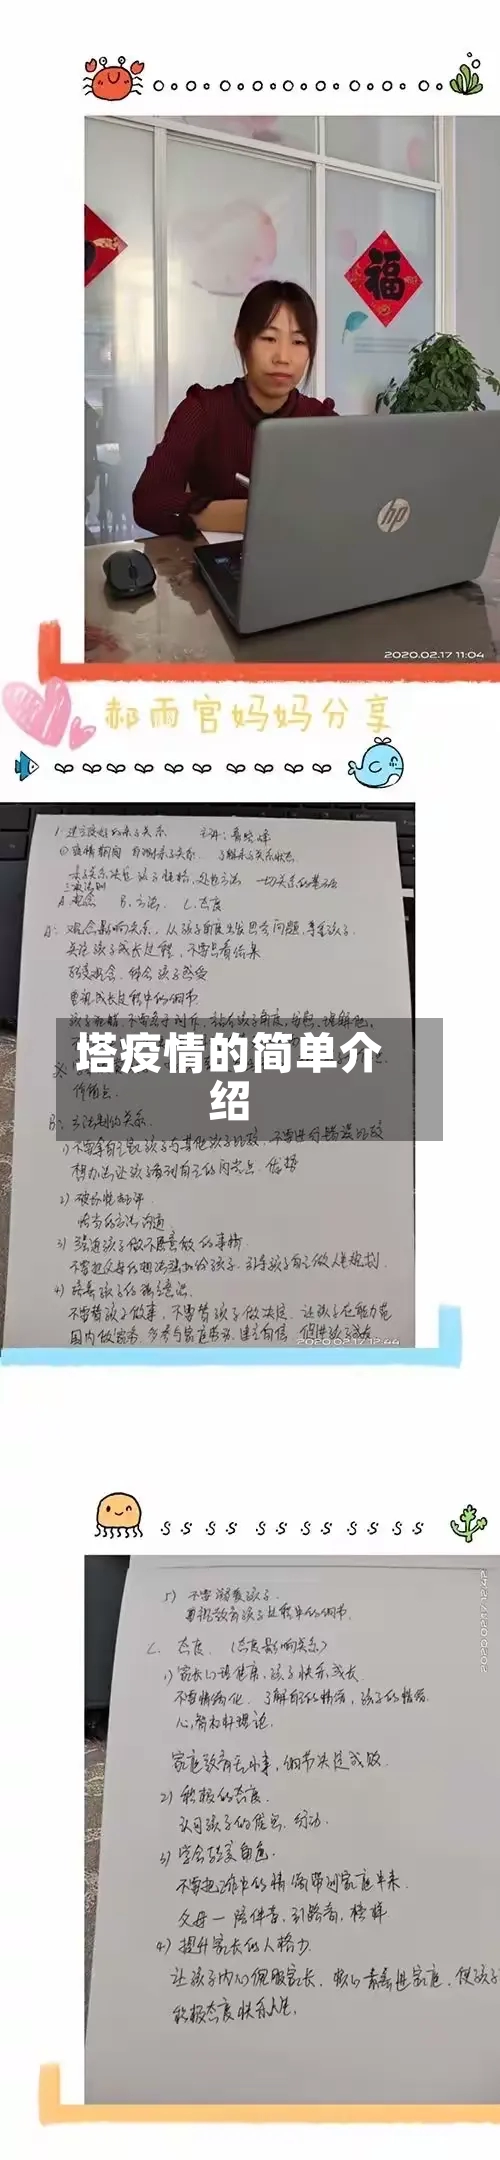 福
hp
2020.02.17 11:04
郝雨官妈妈分享
1. 建立良好的亲子关系 主讲:
① 疫情期间 亲子关系. 了解亲子关系状态.
亲子关系决定孩子性格,处世方法 一切关系的基石
三大法则
A. 观念 B. 方法. C. 态度
A: 观念影响关系, 从孩子角度出发思考问题, 尊重孩子.
关注孩子成长过程, 不要只看结果
转变观念. 体会孩子感受
重视成长过程中的细节
塔疫情的简单介
绍
B: 方法影响关系.
1) 不要拿自己家孩子与其他孩子比较. 不要进行错误比较
想办法让孩子看到自己的闪光点. 优势
2) 破坏性批评.
恰当的方法沟通
3) 强迫孩子做不愿意做的事情
不要把父母的想法强加给孩子. 引导孩子自己做人生规划.
4) 培养孩子的独立意识.
不要替孩子做事, 不要替孩子做决定. 让孩子在能力范
围内做家务. 多参与家庭劳动. 建立自信 促进孩子成长
2020.02.17 12:44
5) 不要溺爱孩子.
重视教育孩子过程中的细节.
C. 态度. (态度影响关系)
1) 家长心理健康, 孩子快乐成长.
不要情绪化. 了解自己的情绪, 孩子的情绪.
心智和好理论.
家庭教育无小事, 细节决定成败.
2) 积极的态度.
认可孩子的信息. 行动.
3) 学会转变角色.
不要把工作中的情绪带到家庭中来.
父母一陪伴者, 引路者, 榜样
4) 提升家长的人格力.
让孩子内心佩服家长.
积极态度快乐人生.